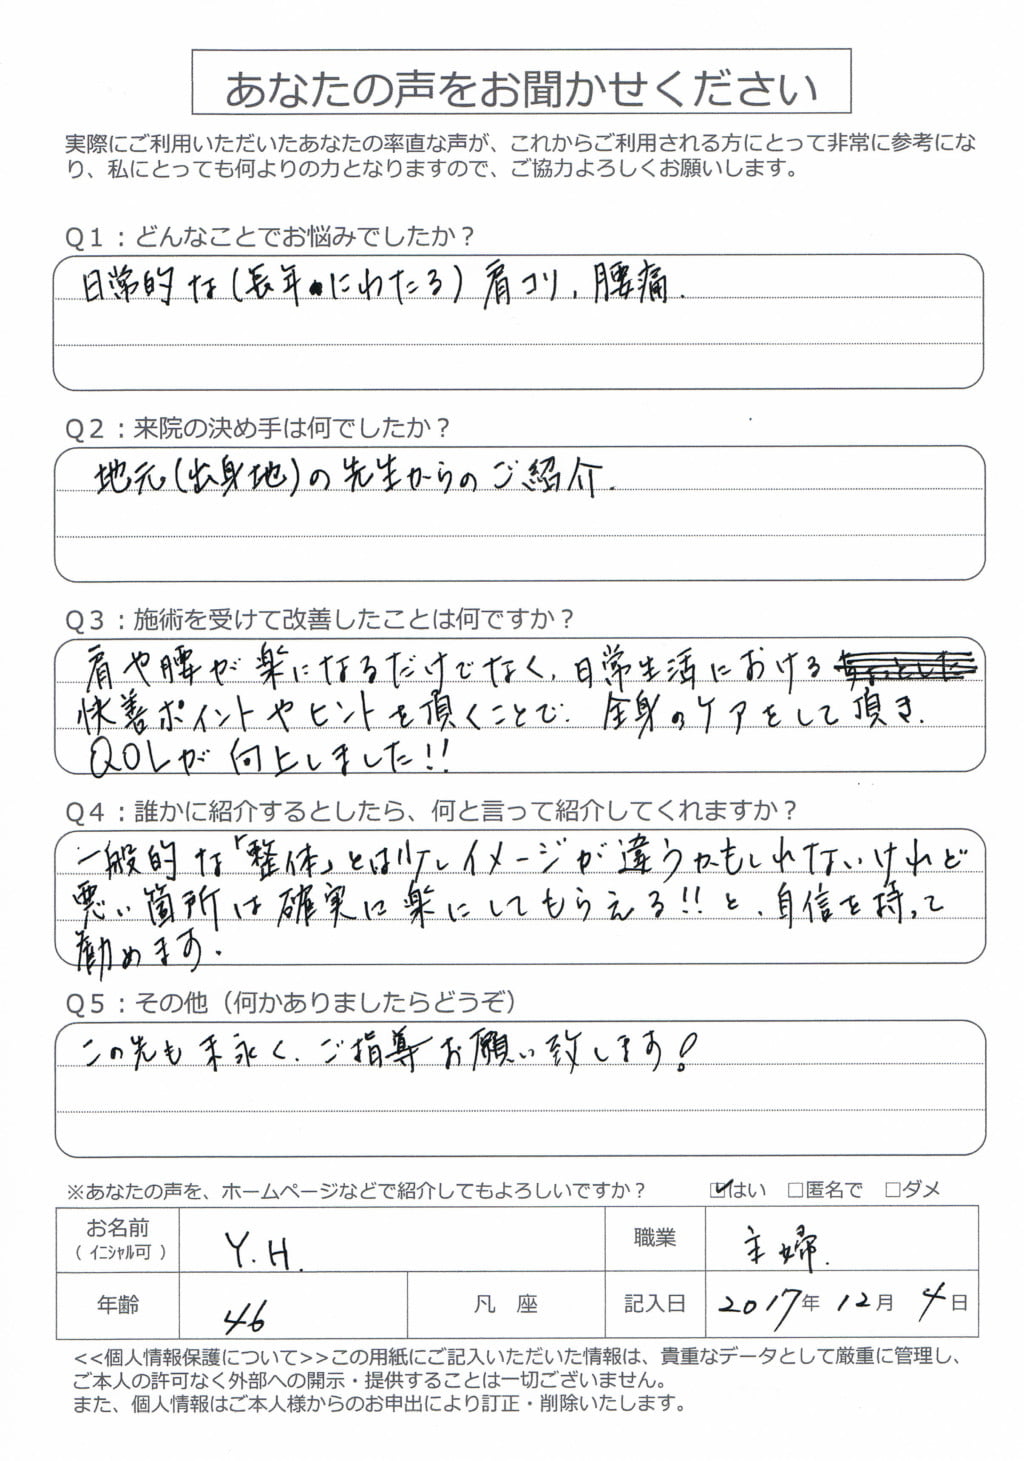 あなたの声をお聞かせください
実際にご利用いただいたあなたの率直な声が、これからご利用される方にとって非常に参考にな
り、私にとっても何よりの力となりますので、ご協力よろしくお願いします。
Q1：どんなことでお悩みでしたか？
日常的な(長年にわたる)肩コリ、腰痛.
Q2：来院の決め手は何でしたか？
地元(出身地)の先生からのご紹介.
Q3：施術を受けて改善したことは何ですか？
肩や腰が楽になるだけでなく、日常生活における
快善ポイントやヒントを頂くことで、全身のケアをして頂き、
QOLが向上しました!!
Q4：誰かに紹介するとしたら、何と言って紹介してくれますか？
一般的な「整体」とは少しイメージが違うかもしれないけれど
悪い箇所は確実に楽にしてもらえる!!と、自信を持って
勧めます.
Q5：その他（何かありましたらどうぞ）
この先も末永く、ご指導お願い致します!
※あなたの声を、ホームページなどで紹介してもよろしいですか？ ☑はい □匿名で □ダメ
お名前 Y.H. 職業 主婦.
（ ｲﾆｼｬﾙ可 ）
年齢 46 凡 座 記入日 2017年 12月 4日
<<個人情報保護について>>この用紙にご記入いただいた情報は、貴重なデータとして厳重に管理し、
ご本人の許可なく外部への開示・提供することは一切ございません。
また、個人情報はご本人様からのお申出により訂正・削除いたします。